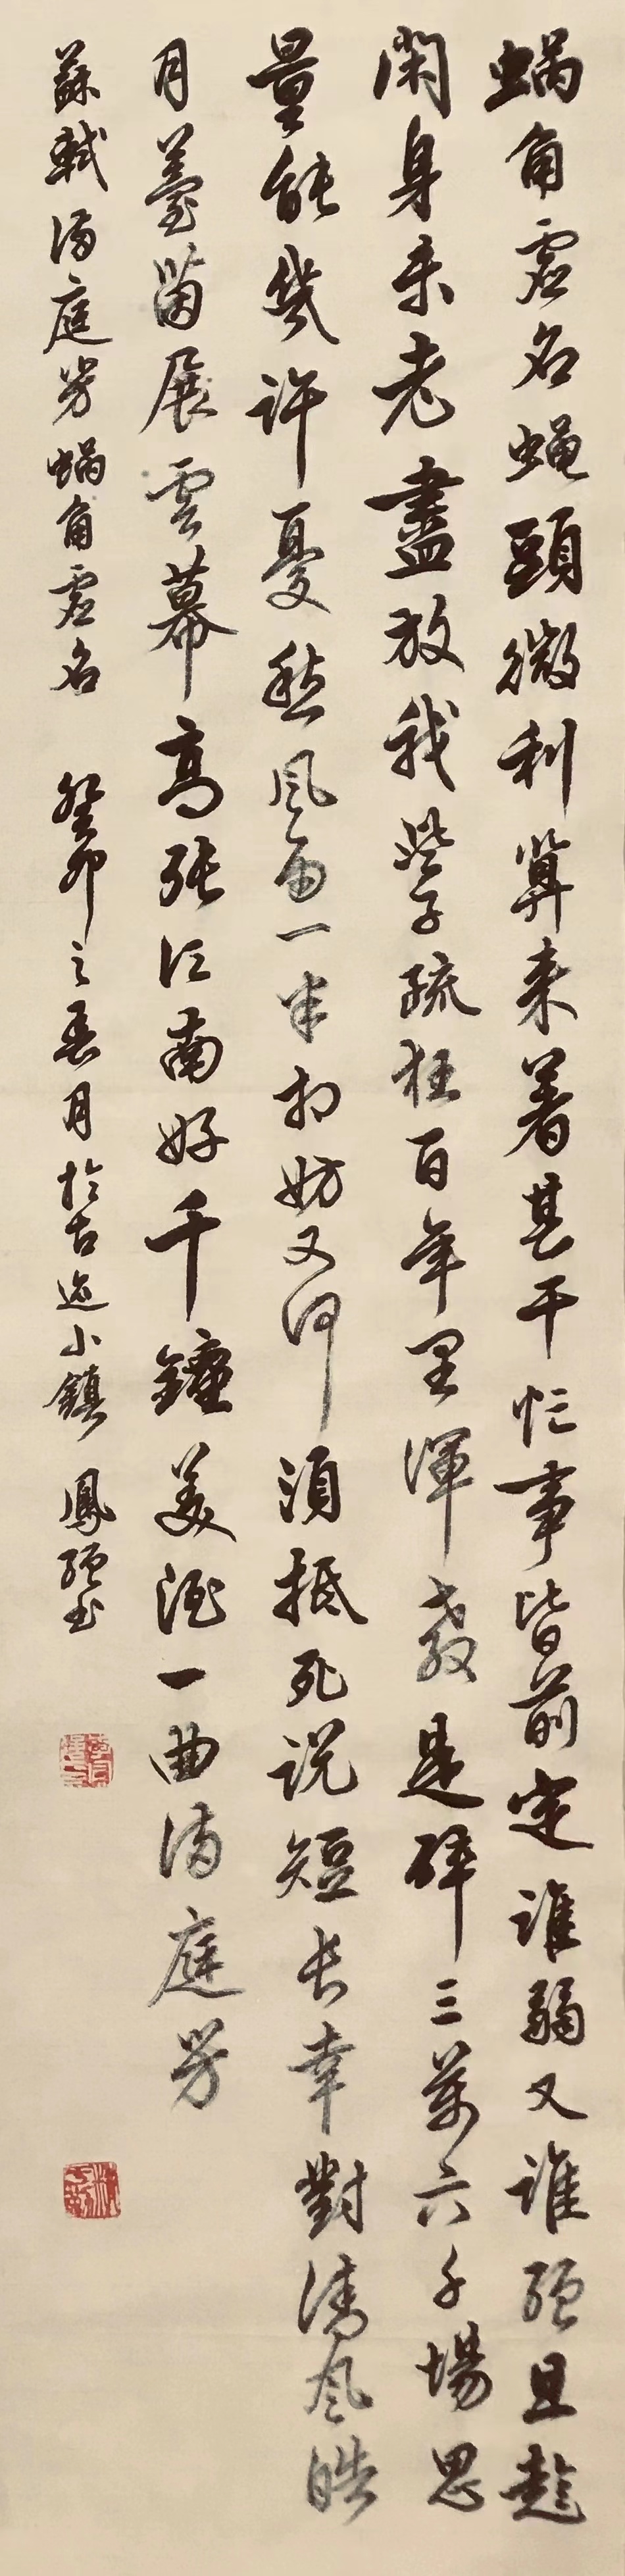 蝸角虛名蠅頭微利算来着甚干忙事皆前定誰弱又誰强且趁
閑身未老盡放我些子疏狂百年里渾教是醉三萬六千場思
量能幾許憂愁風雨一半相妨又何須抵死説短長幸對清風皓
月薹茵展雲幕高張江南好千鍾美酒一曲滿庭芳
蘇軾滿庭芳蝸角虛名 癸卯之春月於古迹小鎮 鳳强书